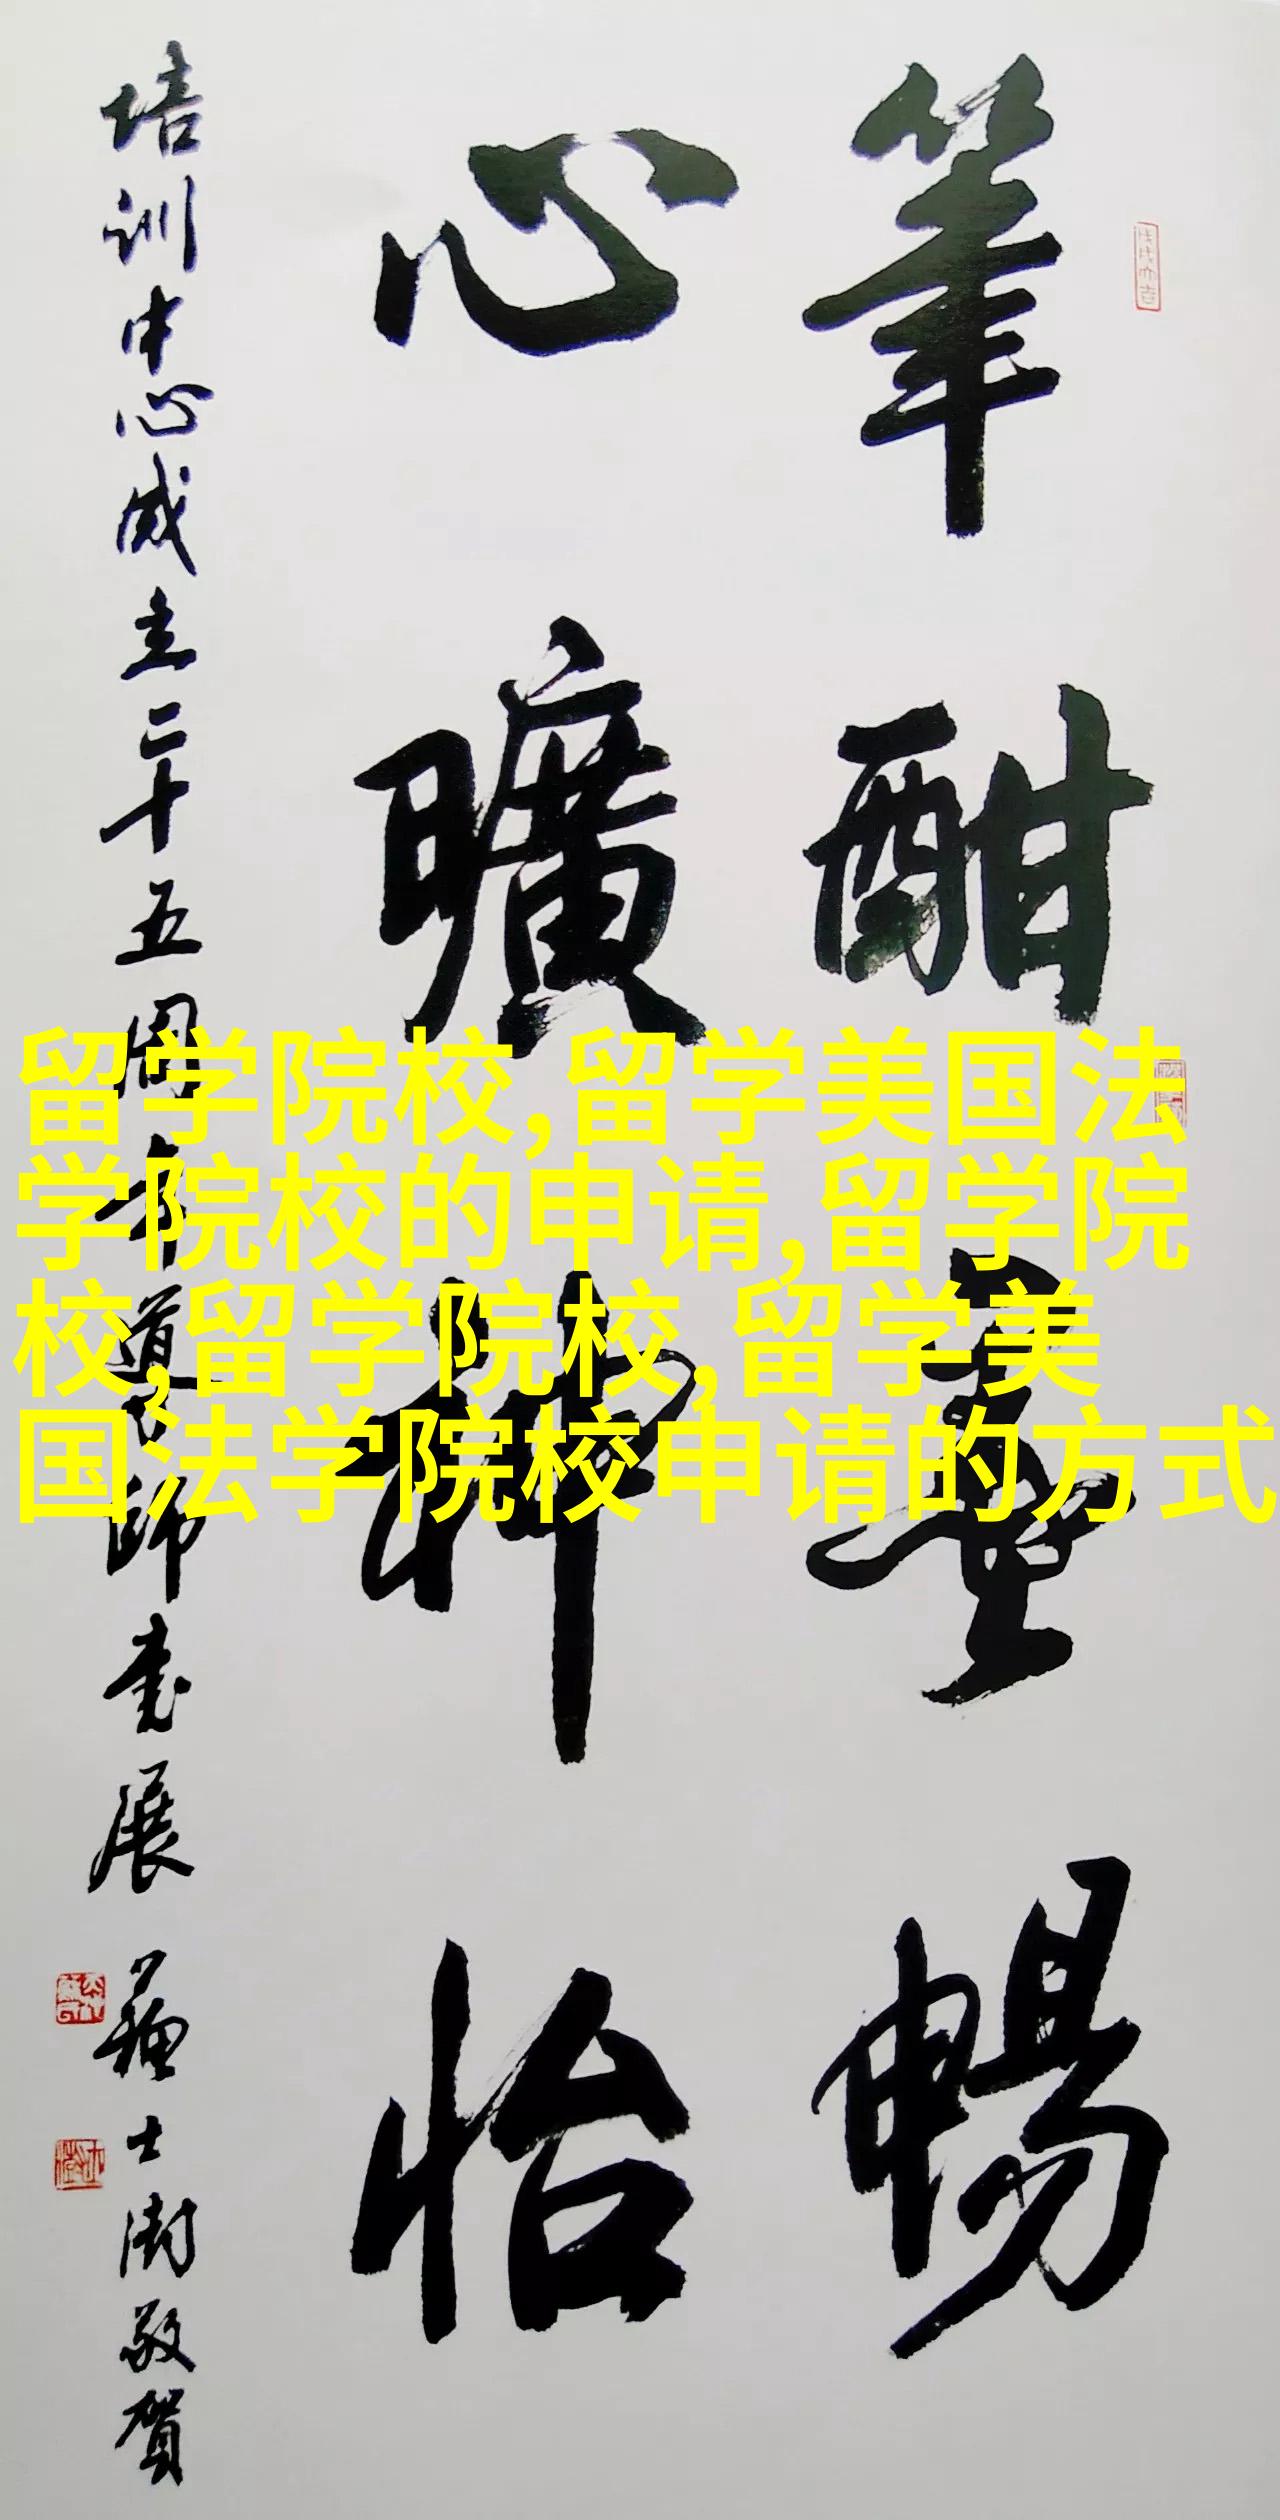 筆酣墨暢
心曠神怡
培训中心成立二十五周年道师书展
士澍敬贺
留学院校,留学美国法
学院校的申请,留学院
校,留学院校,留学美
国法学院校申请的方式